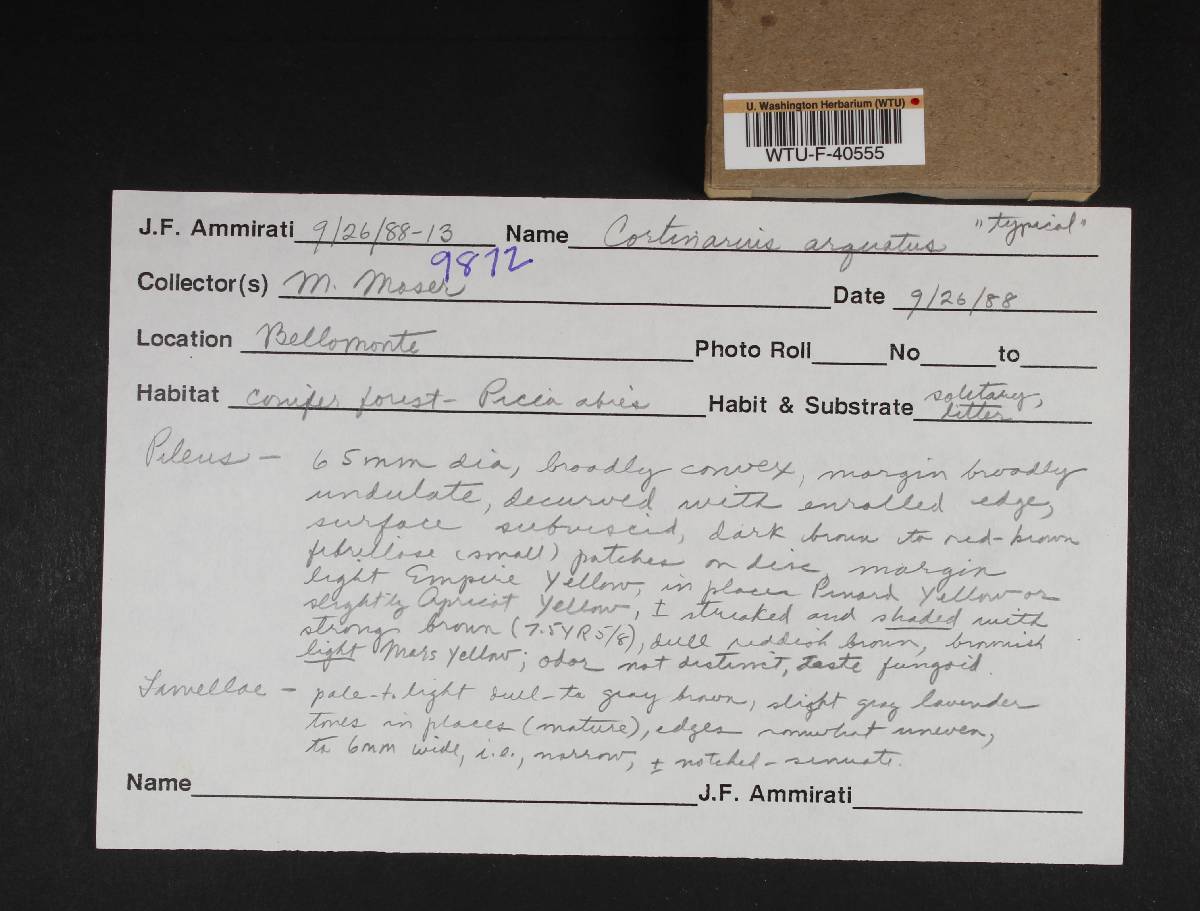 U. Washington Herbarium (WTU)
WTU-F-40555
J.F. Ammirati 9/26/88-13 Name Cortinarius arquatus "typical"
9872
Collector(s) M. Moser Date 9/26/88
Location Bellomonte Photo Roll No to
Habitat conifer forest - Picea abies Habit & Substrate solitary, litter
Pileus - 65mm dia, broadly convex, margin broadly
undulate, decurved with enrolled edge,
surface subviscid, dark brown to red-brown
fibrillose (small) patches on disc, margin
light Empire Yellow, in places Pinard Yellow or
slightly Apricot Yellow, ± streaked and shaded with
strong brown (7.5YR5/8), dull reddish brown, brownish
light Mars Yellow; odor not distinct, taste fungoid.
Lamellae - pale-to light dull-to gray brown, slight gray lavender
tones in places (mature), edges somewhat uneven,
to 6mm wide, i.e., narrow, ± notched-sinuate.
Name J.F. Ammirati